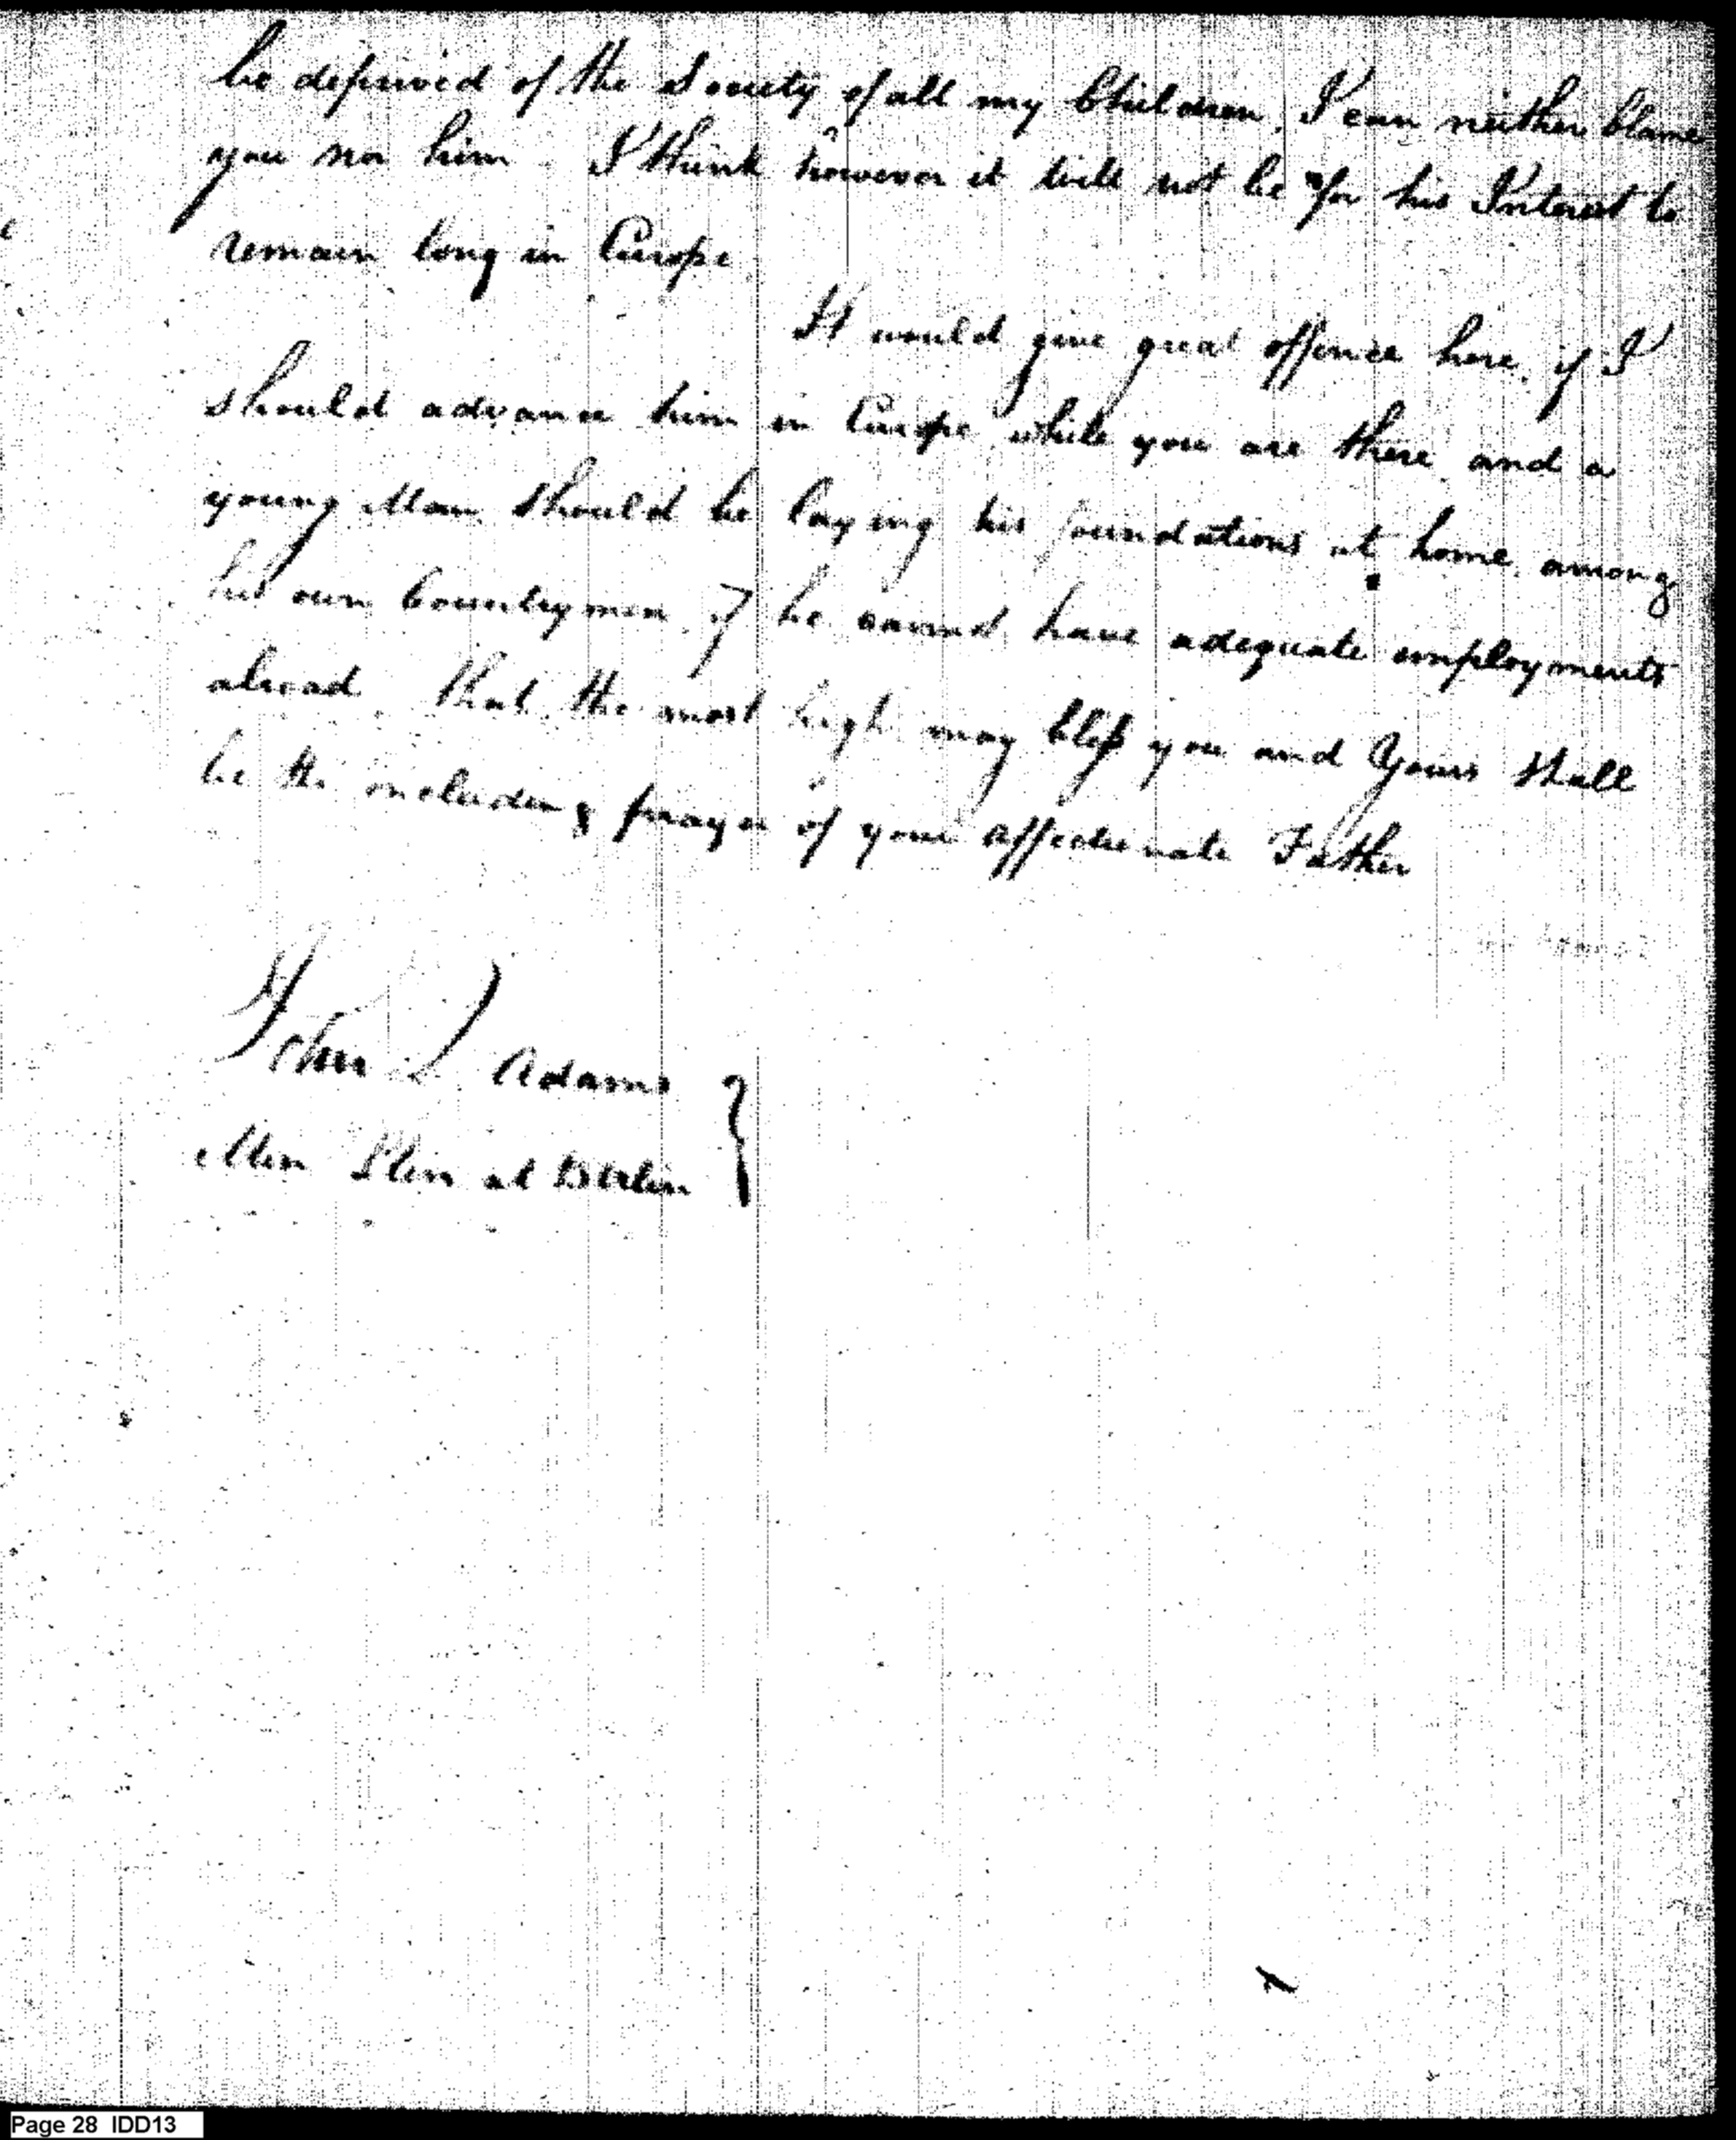 be deprived of the Society of all my Children. I can neither blame
you nor him. I think however it will not be for his Interest to
remain long in Europe
It would give great offence here, if I
should advance him in Europe while you are there and a
young Man should be laying his foundations at home, among
his own Countrymen, if he cannot have adequate employments
abroad. That the most high may bless you and yours shall
be the concluding prayer of your affectionate Father
John Q Adams
Min Plen at Berlin
Page 28 IDD13